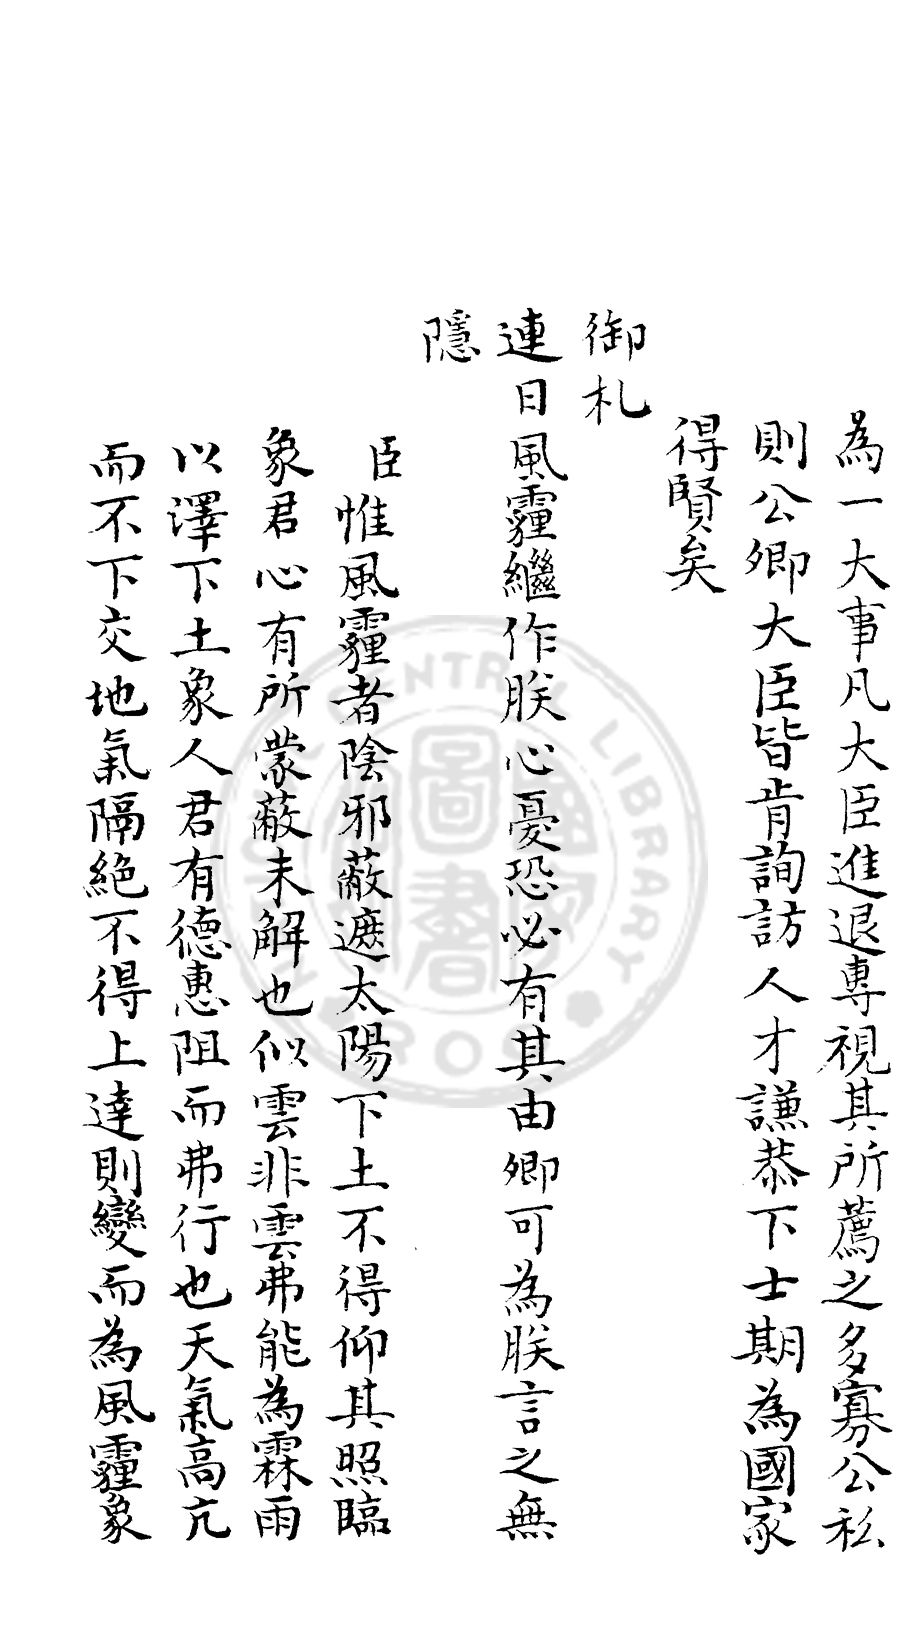 為一大事凡大臣進退專視其所薦之多寡公私
則公卿大臣皆肯詢訪人才謙恭下士期為國家
得賢矣
御札
連日風霾繼作朕心憂恐必有其由卿可為朕言之無
隱
臣惟風霾者陰邪蔽遮太陽下土不得仰其照臨
象君心有所蒙蔽未解也似雲非雲弗能為霖雨
以澤下土象人君有德惠阻而弗行也天氣高亢
而不下交地氣隔絶不得上達則變而為風霾象
CENTRAL LIBRARY
圖書